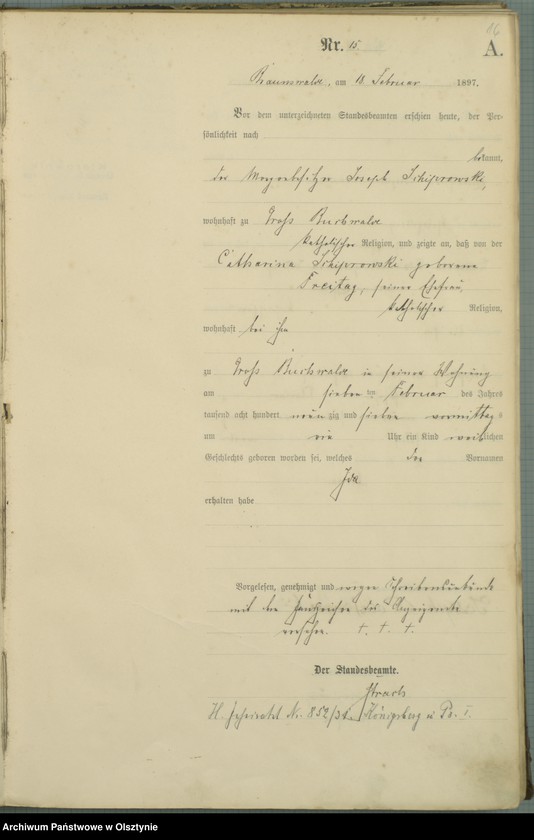 16
Nr. 15
A.
Braunswalde, am 10 Februar 1897.
Vor dem unterzeichneten Standesbeamten erschien heute, der Per-
sönlichkeit nach
bekannt,
der Joseph Schiprowski,
wohnhaft zu Groß Buchwalde
katholischer Religion, und zeigte an, daß von der
Catharina Schiprowski geborene
Freitag, seiner Ehefrau,
katholischer Religion,
wohnhaft bei ihm
zu Groß Buchwalde in seiner Wohnung
am sieben ten Februar des Jahres
tausend acht hundert neun zig und sieben vormittag s
um Uhr ein Kind weiblichen
Geschlechts geboren worden sei, welches den Vornamen
Ida
erhalten habe
Vorgelesen, genehmigt und wegen Schreibensunkunde
mit den Handzeichen des Anzeigenden
versehen. † . † . †.
Der Standesbeamte.
H. Nr. 852/31 Königsberg i. Pr. I.
Archiwum Państwowe w Olsztynie